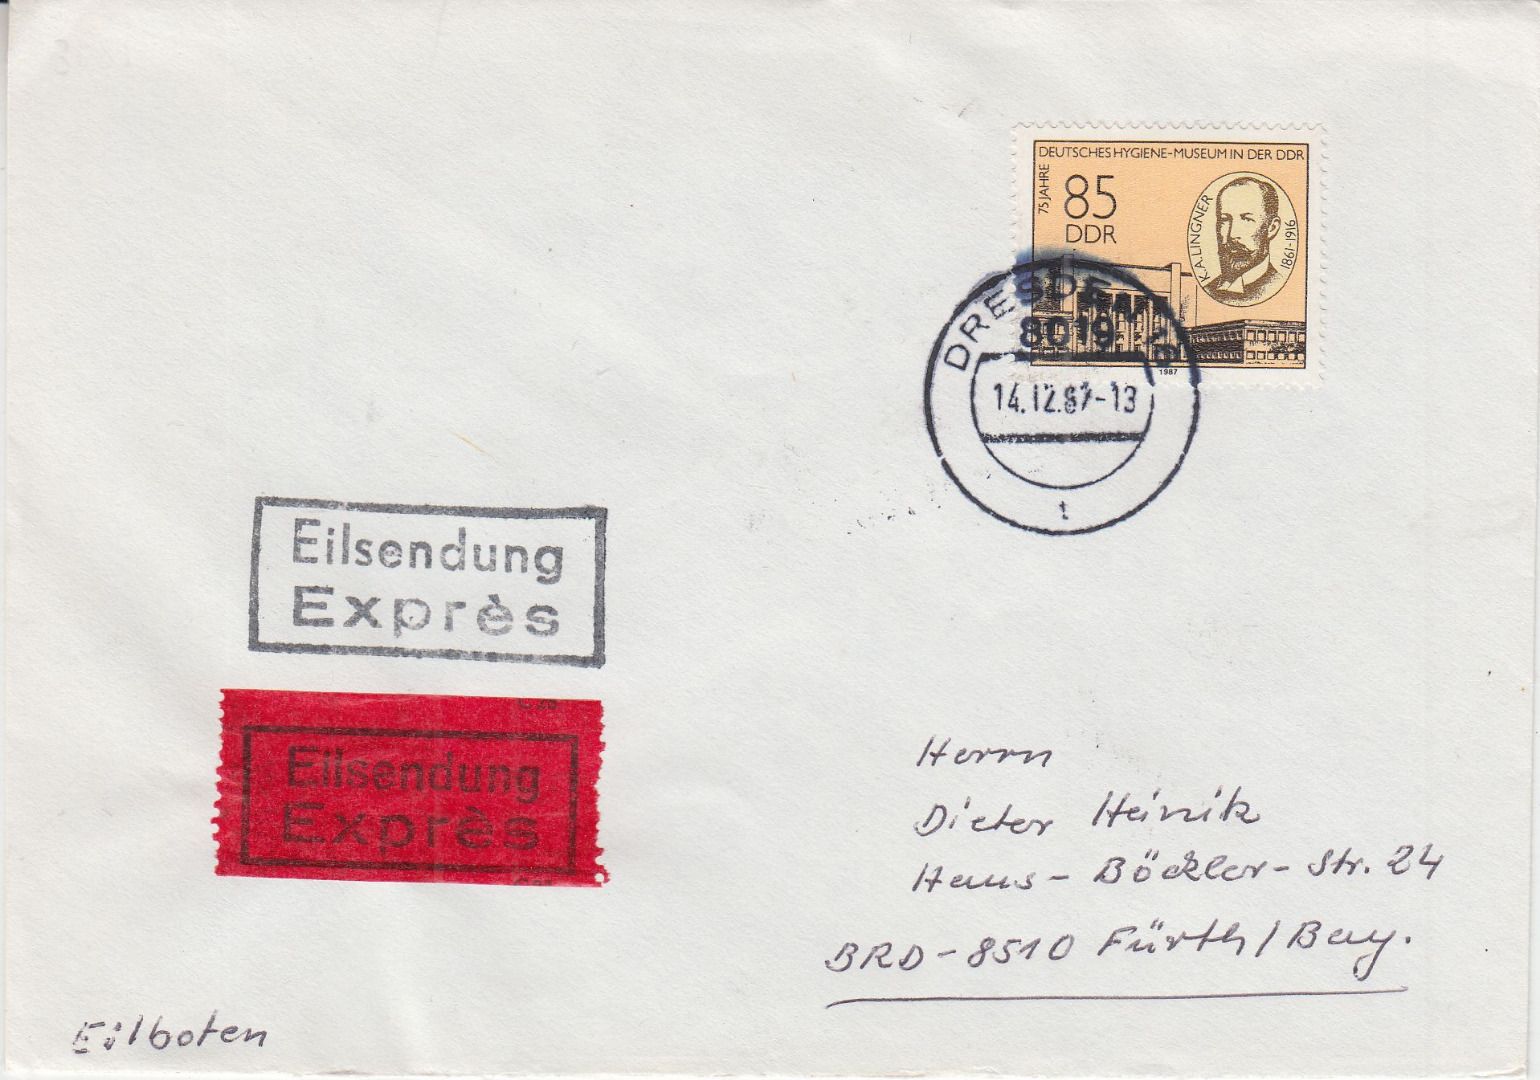 DEUTSCHES HYGIENE-MUSEUM IN DER DDR
75 JAHRE
85
DDR
K.A.LINGNER
1861-1916
1987
DRESDEN 19
8019
14.12.87-13
t
Eilsendung
Exprès
Eilsendung
Exprès
Herrn
Dieter Heinik
Hans-Böckler-Str. 24
BRD-8510 Fürth/Bay.
Eilboten